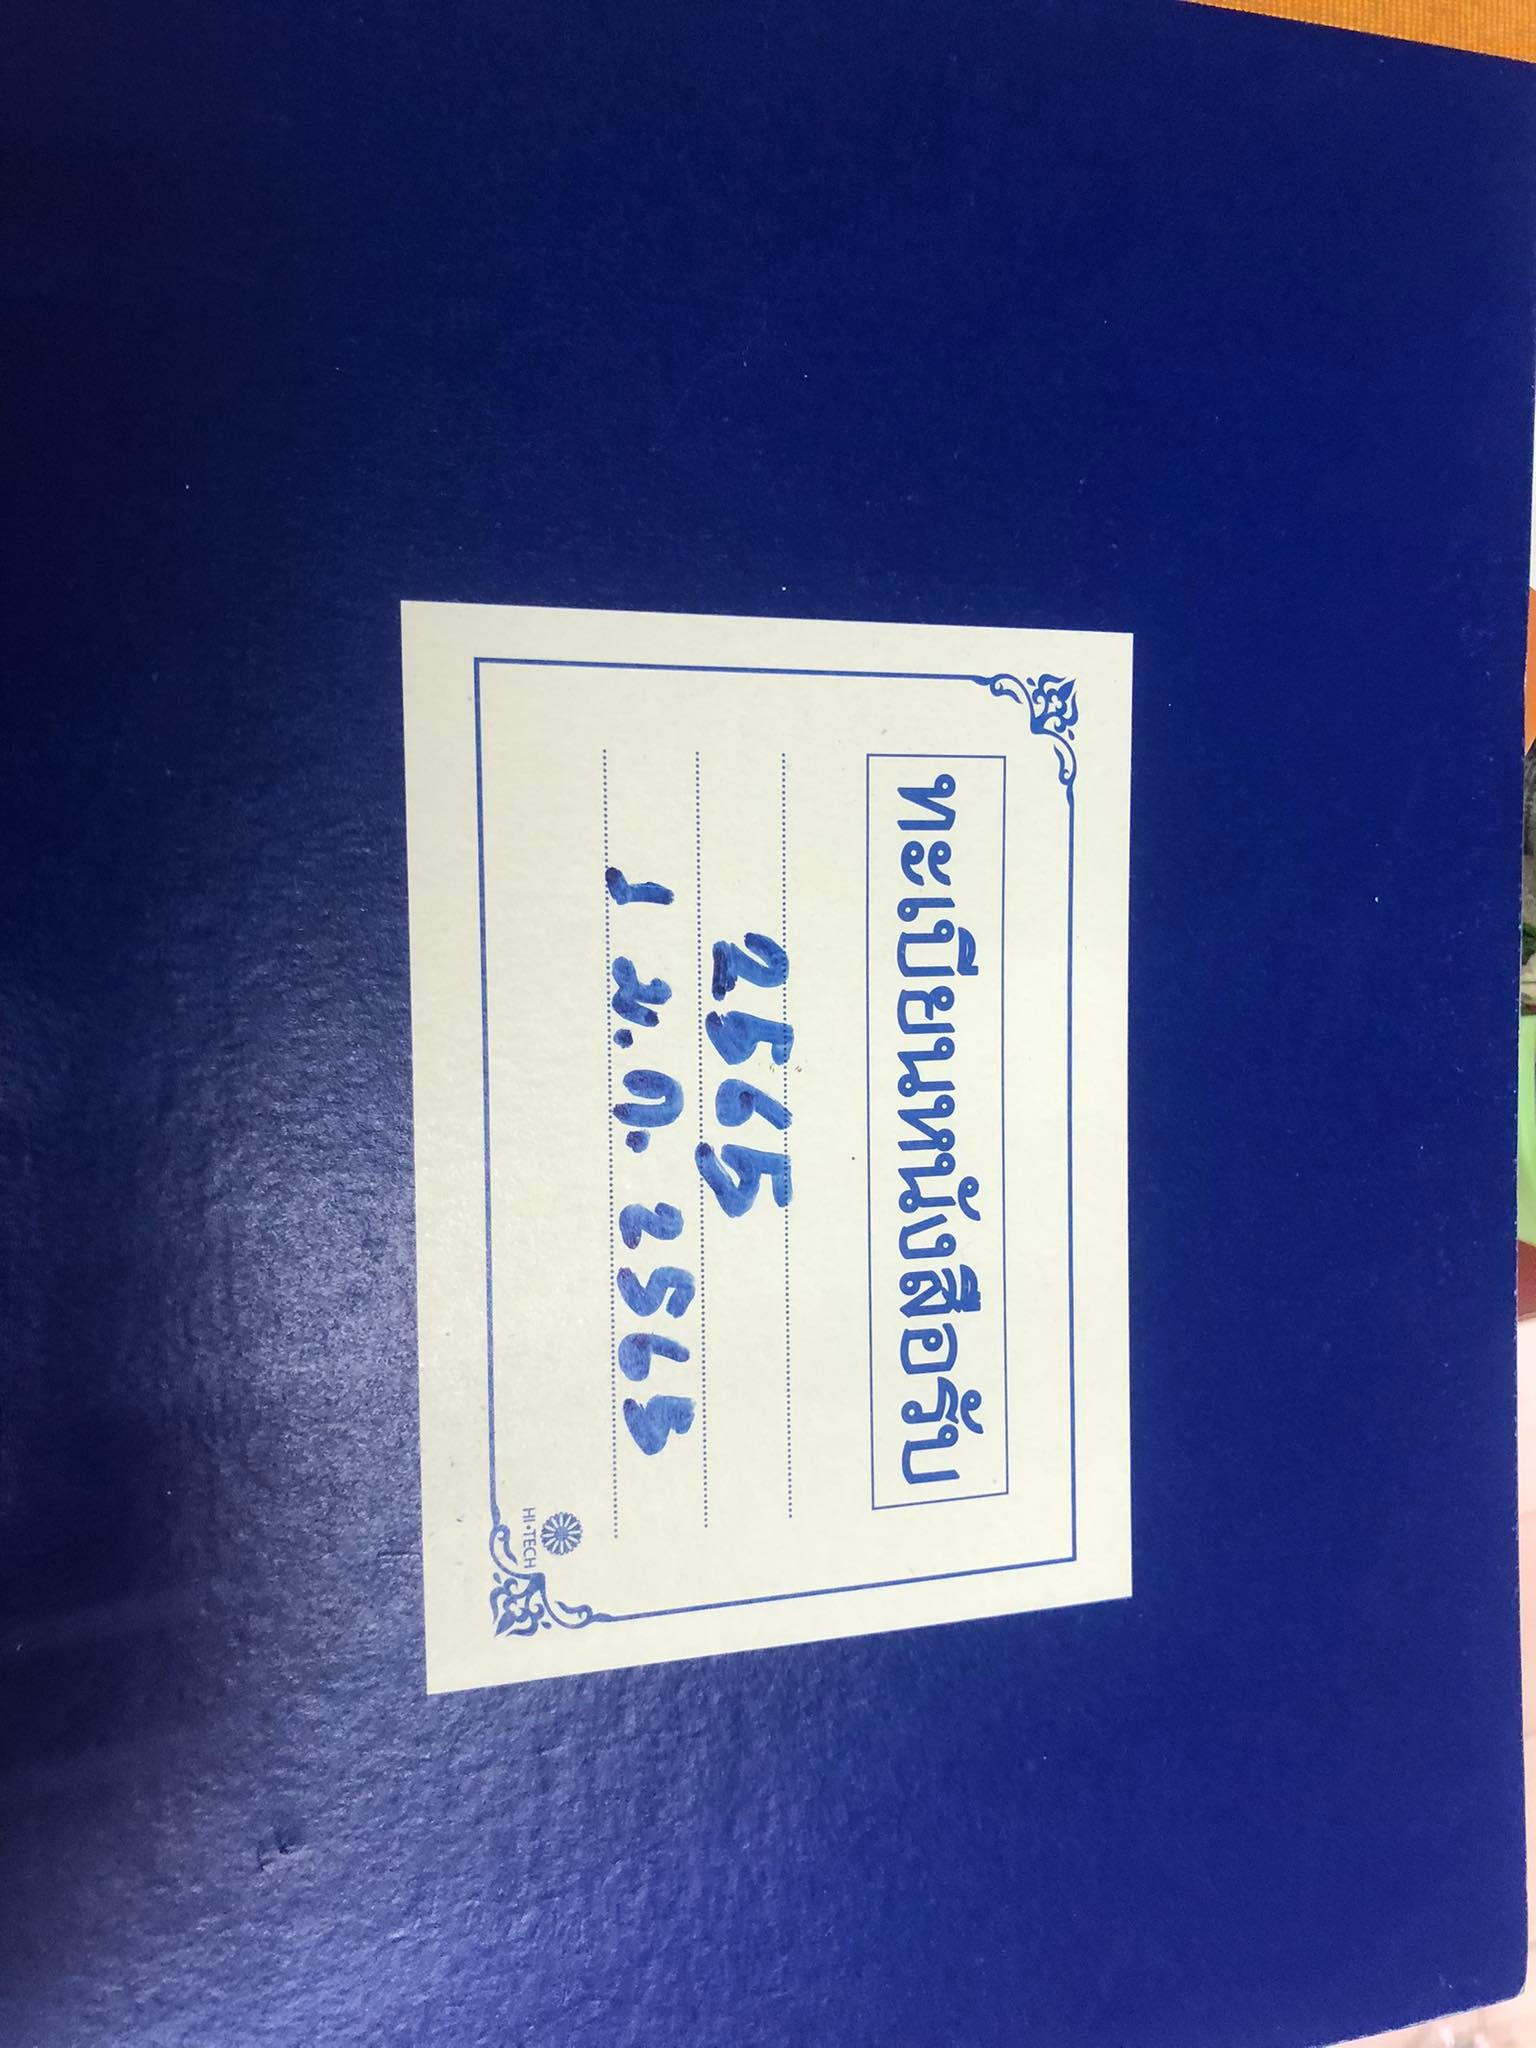 ทะเบียนหนังสือรับ
2565
1 ม.ค. 2565
HI•TECH